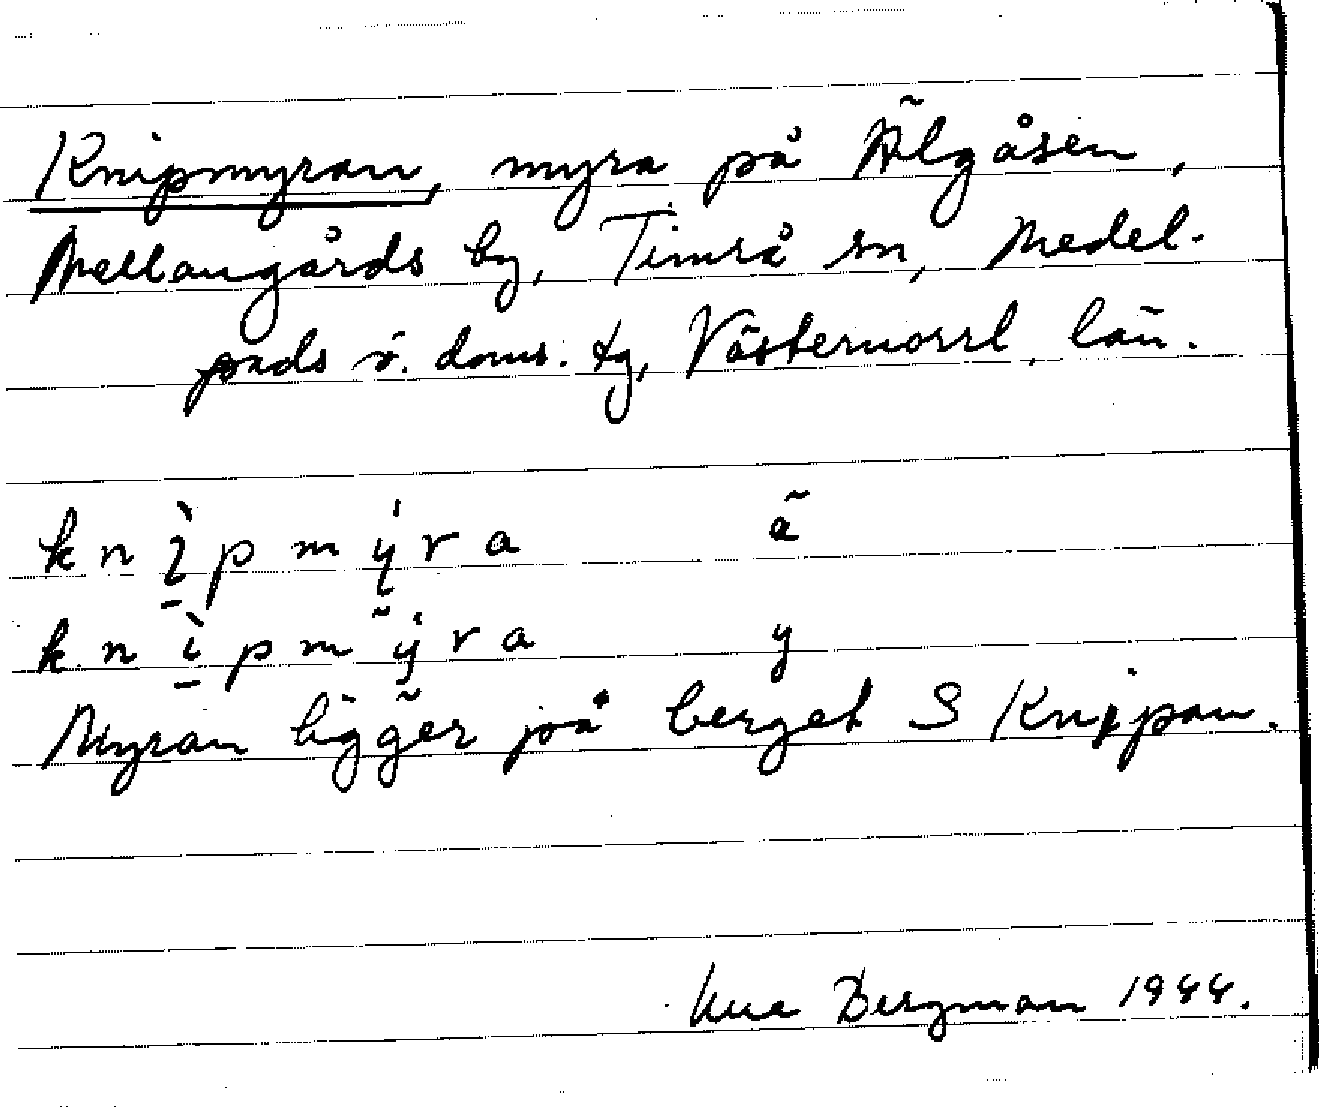 Knipmyran, myra på Älgåsen,
Mellangårds by, Timrå sn, Medel-
pads ö. doms. tg, Västernorrl. län.
k n ì p m y r a ä
k n ì p m y r a y
Myran ligger på berget S Knipan.
Bergman 1944.